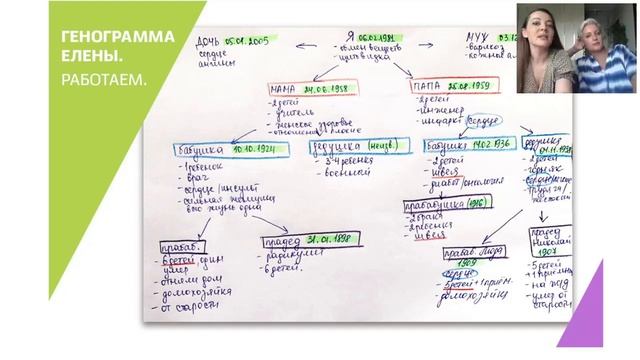 ГЕНОГРАММА
ЕЛЕНЫ.
РАБОТАЕМ.
ДОЧЬ 05.01.2005
сердце
Я 05.02.1981
- обмен веществ
- щитовидка
МУЖ 03.12
- варикоз
МАМА 24.06.1958
- 2 детей
- учитель
- женское здоровье
- отношения плохие
ПАПА 25.08.1959
- 2 детей
- инженер
- инфаркт сердце
бабушка 10.10.1924
- 1 ребёнок
- врач
- сердце/инсульт
- сильная женщина
всю жизнь одна
дедушка (неизв.)
- 3-4 ребёнка
- военный
бабушка 14.02.1936
- 2 детей
- швея
- диабет/онкология
дедушка
04.11.193
- 2 детей
- горняк
прабабушка (1916)
- 2 брака
- 2 ребёнка
- швея
прабаб.
- 6 детей, один
умер
- отняли дом
- домохозяйка
- от старости
прадед 31.01.1898
- радикулит
- 6 детей.
прабаб.
1909
сердце
- 5 детей + 1 приём.
- домохозяйка
прадед
Николай
1907
- 5 детей
- на ЖД
- умер от
старости